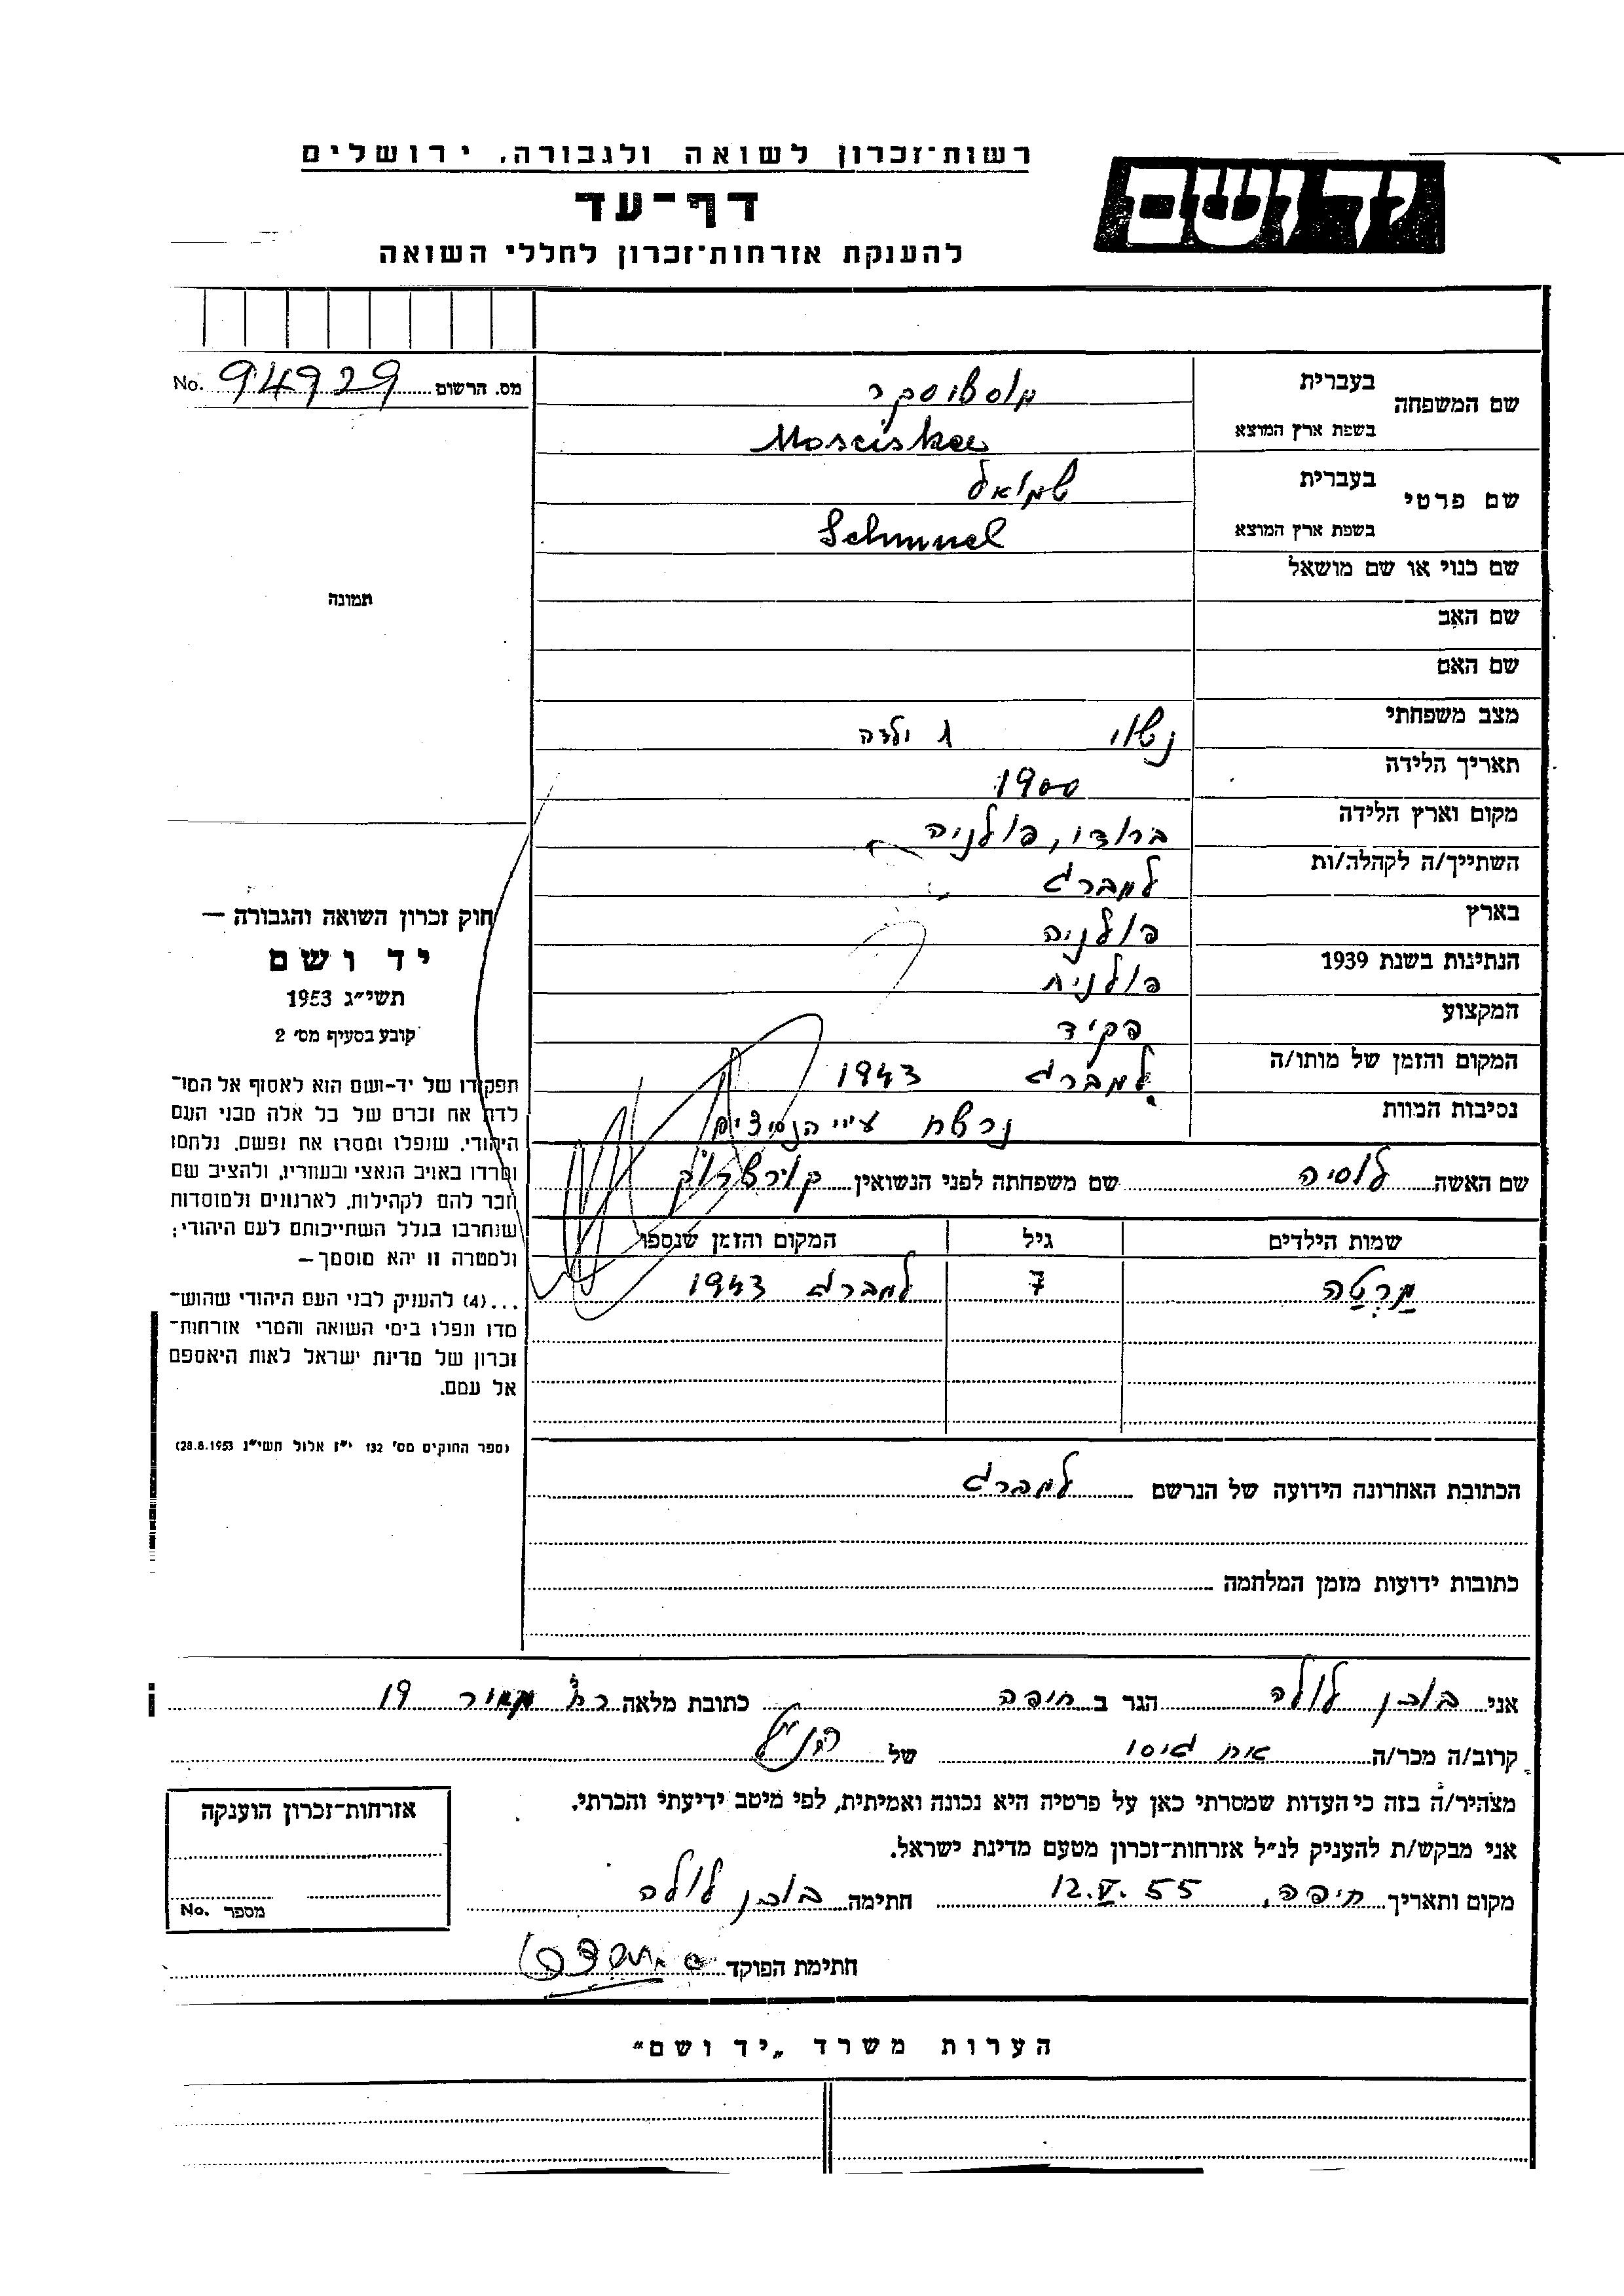 רשות-זכרון לשואה ולגבורה, ירושלים
יד ושם
דף-עד
להענקת אזרחות-זכרון לחללי השואה
מס. הרשום 94929 No.
שם המשפחה
בעברית
בשפת ארץ המוצא Mosciskee
שם פרטי
בעברית שמואל
בשפת ארץ המוצא Schmuel
שם כנוי או שם מושאל
שם האב
שם האם
מצב משפחתי נשוי 1 ילדה
תאריך הלידה 1900
מקום וארץ הלידה ברודי, פולניה
השתייך/ה לקהלה/ות למברג
בארץ פולניה
הנתינות בשנת 1939 פולנית
המקצוע פקיד
המקום והזמן של מותו/ה למברג 1943
נסיבות המוות נרצח ע״י הנאצים
שם האשה לוסיה שם משפחתה לפני הנשואין
שמות הילדים גיל המקום והזמן שנספו
מרטה 7 למברג 1943
הכתובת האחרונה הידועה של הנרשם למברג
כתובות ידועות מזמן המלחמה
תמונה
חוק זכרון השואה והגבורה –
יד ושם
תשי״ג 1953
קובע בסעיף מס׳ 2
תפקידו של יד-ושם הוא לאסוף אל המו-
לדת את זכרם של כל אלה מבני העם
היהודי, שנפלו ומסרו את נפשם, נלחמו
ומרדו באויב הנאצי ובעוזריו, ולהציב שם
וזכר להם לקהילות, לארגונים ולמוסדות
שנחרבו בגלל השתייכותם לעם היהודי;
ולמטרה זו יהא מוסמך –
...(4) להעניק לבני העם היהודי שהוש-
מדו ונפלו בימי השואה והמרי אזרחות-
זכרון של מדינת ישראל לאות היאספם
אל עמם.
(ספר החוקים מס׳ 132 י״ז אלול תשי״ג 28.8.1953)
אני בוכן לולה הגר ב חיפה כתובת מלאה רח׳ 19
קרוב/ה מכר/ה אח גיסו של הנ״ל
מצהיר/ה בזה כי העדות שמסרתי כאן על פרטיה היא נכונה ואמיתית, לפי מיטב ידיעתי והכרתי.
אני מבקש/ת להעניק לנ״ל אזרחות-זכרון מטעם מדינת ישראל.
מקום ותאריך חיפה, 12.V.55 חתימה בוכן לולה
חתימת הפוקד
אזרחות-זכרון הוענקה
מספר No.
הערות משרד „יד ושם״